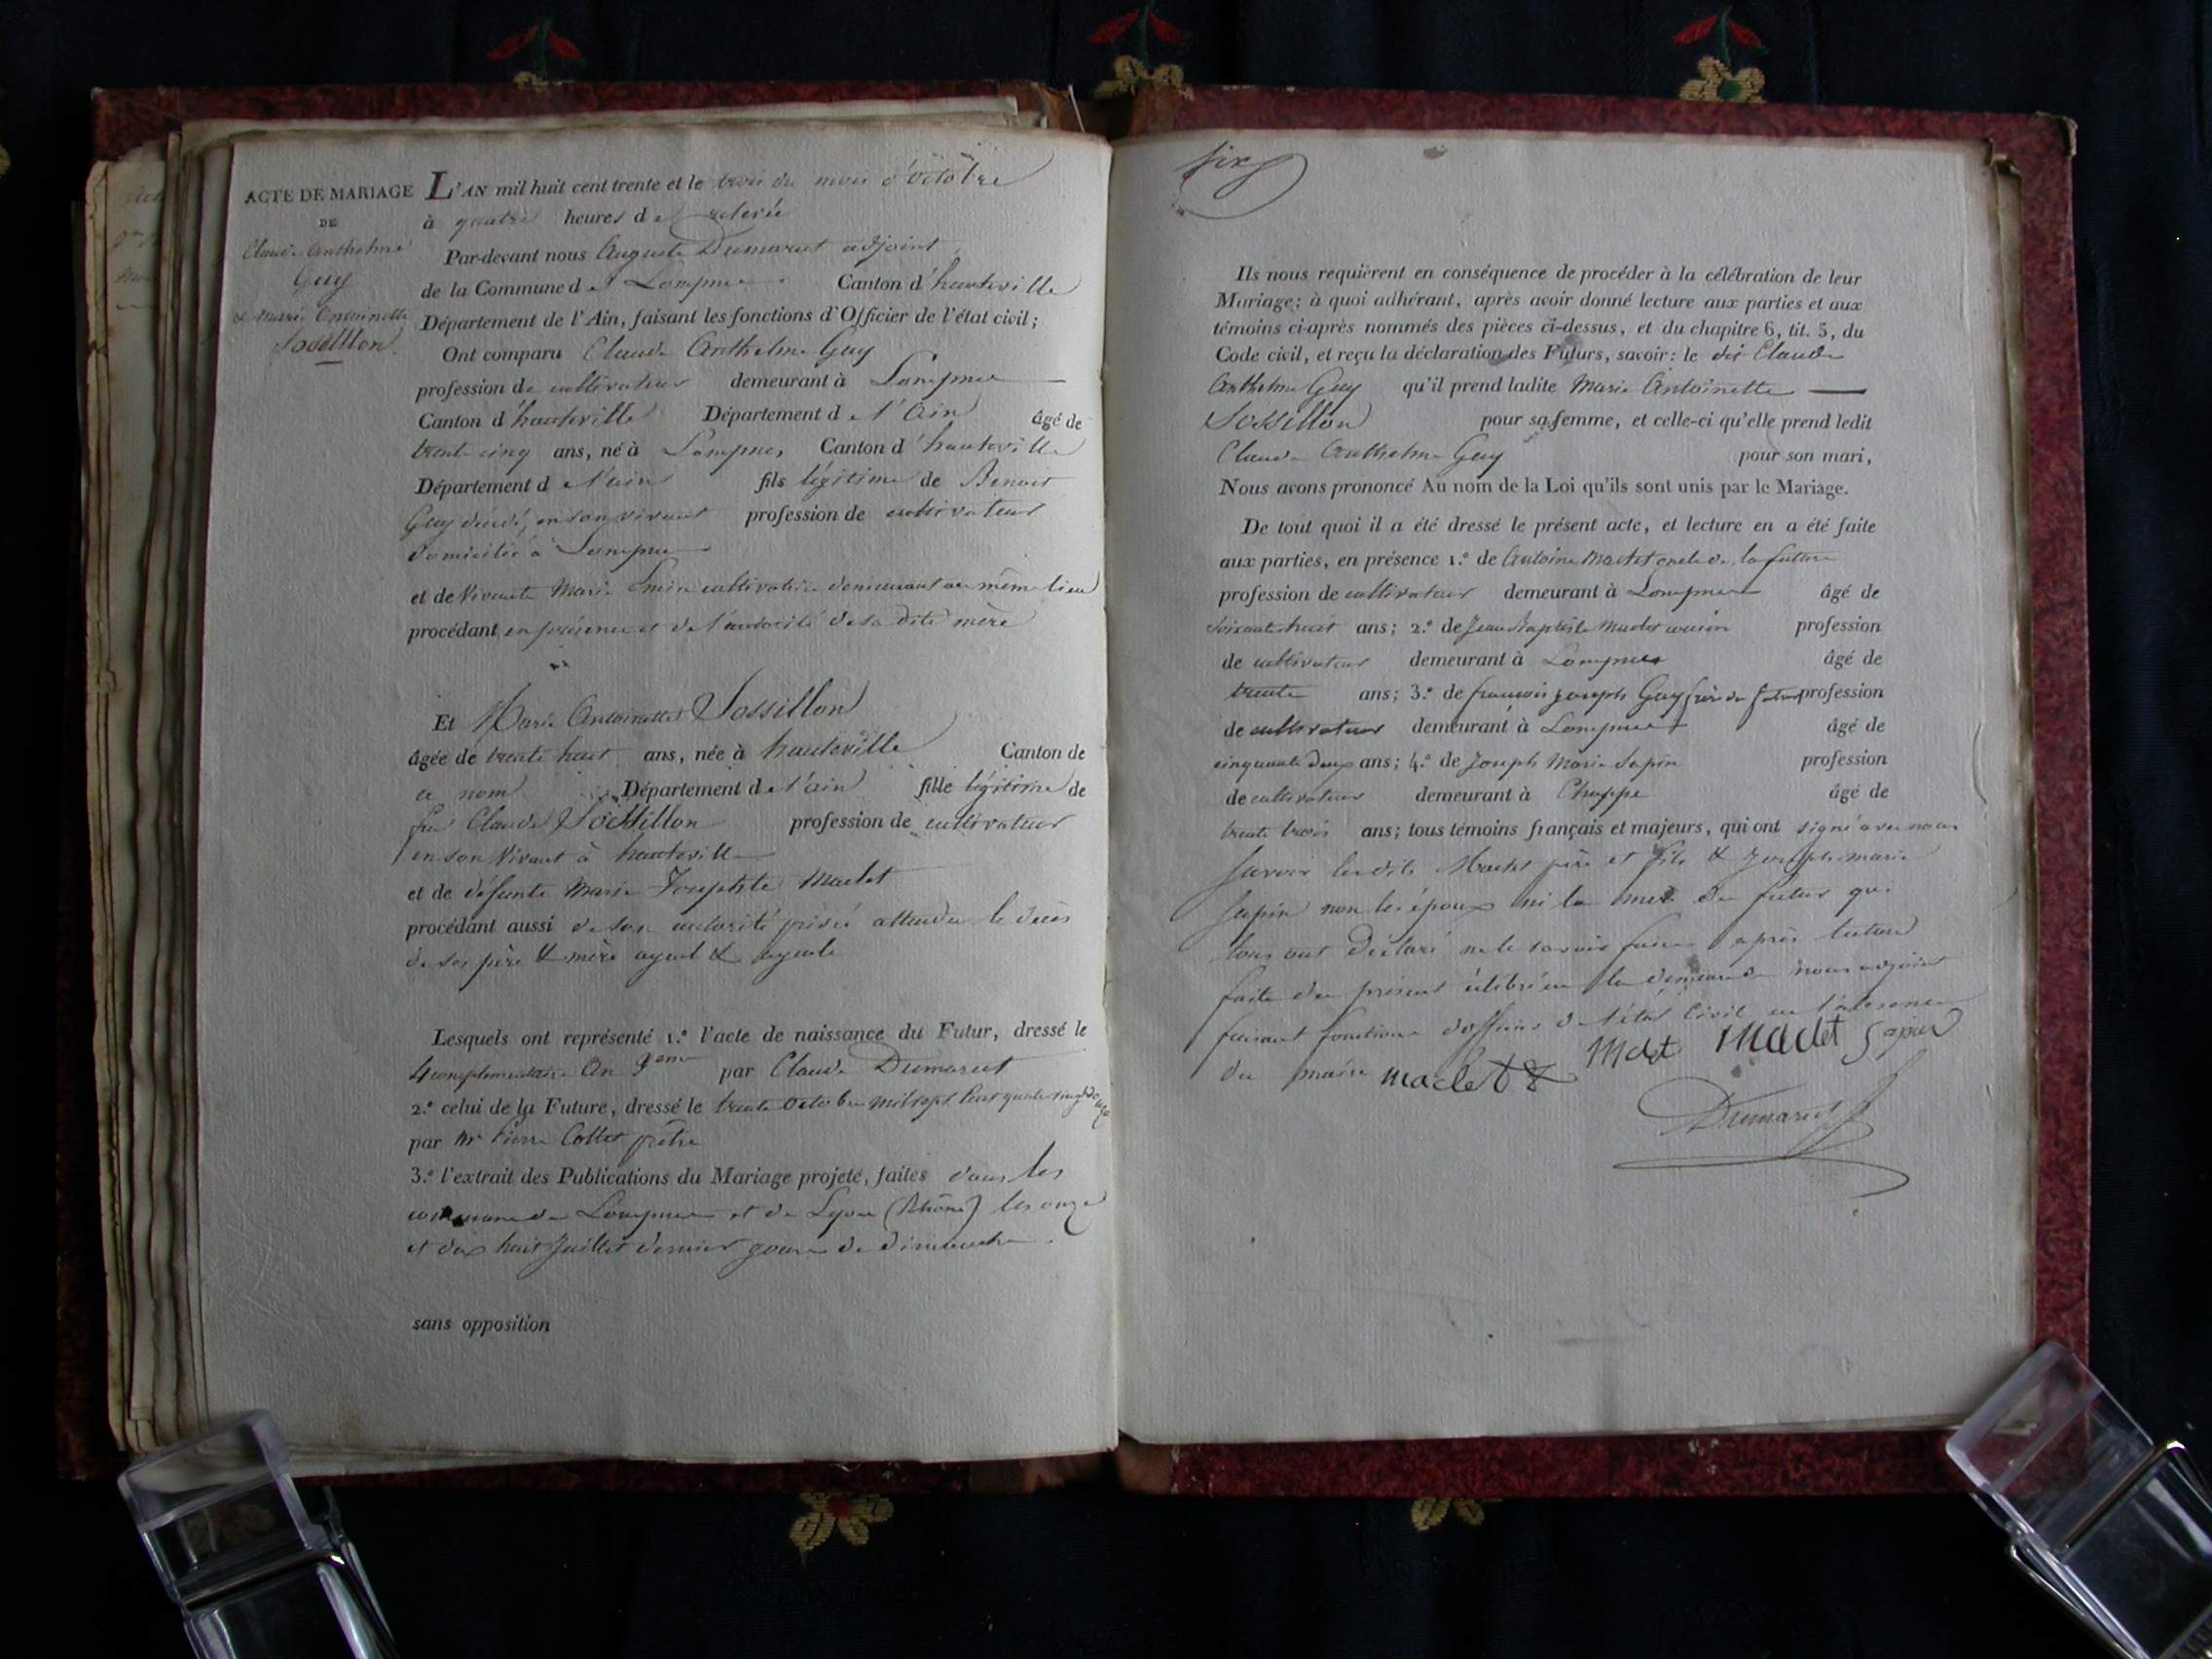 ACTE DE MARIAGE
DE
Claude Anthelme
Guy
& Marie Antoinette
Sossillon.
L'AN mil huit cent trente et le trois du mois d'octobre
à quatre heures de relevée
Par-devant nous Auguste Dumarest adjoint
de la Commune de Lompnes Canton d'hauteville
Département de l'Ain, faisant les fonctions d'Officier de l'état civil;
Ont comparu Claude Anthelme Guy
profession de cultivateur demeurant à Lompnes
Canton d'hauteville Département de l'Ain âgé de
trente cinq ans, né à Lompnes Canton d'hauteville
Département de l'ain fils légitime de Benoit
Guy décédé, en son vivant profession de cultivateur
domicilié à Lompnes
et de Vivante Marie cultivatrice demeurant au même lieu
procédant en présence et de l'autorité de sa dite mère
Et Marie Antoinette Sossillon
âgée de trente huit ans, née à hauteville Canton de
ce nom Département de l'ain fille légitime de
feu Claude Sossillon profession de cultivateur
en son vivant à hauteville
et de défunte Marie Josephte Maclet
procédant aussi de son autorité privée attendu le décès
de ses père & mère ayeul & ayeule
Lesquels ont représenté 1.º l'acte de naissance du Futur, dressé le
4 complementaire An 3eme par Claude Dumarest
2.º celui de la Future, dressé le trente octobre mil sept cent quatre vingt douze
par Mr Pierre Collet prêtre
3.º l'extrait des Publications du Mariage projeté, faites dans les
communes de Lompnes et de Lyon (Rhône) les onze
et dix huit Juillet dernier jours de dimanche.
sans opposition
six
Ils nous requièrent en conséquence de procéder à la célébration de leur
Mariage; à quoi adhérant, après avoir donné lecture aux parties et aux
témoins ci-après nommés des pièces ci-dessus, et du chapitre 6, tit. 5, du
Code civil, et reçu la déclaration des Futurs, savoir: le dit Claude
Anthelme Guy qu'il prend ladite Marie Antoinette
Sossillon pour sa femme, et celle-ci qu'elle prend ledit
Claude Anthelme Guy pour son mari,
Nous avons prononcé Au nom de la Loi qu'ils sont unis par le Mariage.
De tout quoi il a été dressé le présent acte, et lecture en a été faite
aux parties, en présence 1.º de Antoine Maclet oncle de la future
profession de cultivateur demeurant à Lompnes âgé de
soixante huit ans; 2.º de Jean Baptiste Maclet cousin profession
de cultivateur demeurant à Lompnes âgé de
trente ans; 3.º de françois joseph Guy frère du futur profession
de cultivateur demeurant à Lompnes âgé de
cinquante deux ans; 4.º de Joseph Marie Sapin profession
de cultivateur demeurant à Chappe âgé de
trente trois ans; tous témoins français et majeurs, qui ont signé avec nous
savoir lesdits Maclet père et fils & Joseph marie
Sapin non les époux ni la mère du futur qui
tous ont déclaré ne le savoir faire après lecture
faite du présent célébré en la demeure de nous adjoint
faisant fonctions d'officier de l'état Civil en l'absence
du maire maclet Maclet Sapin
Dumarest